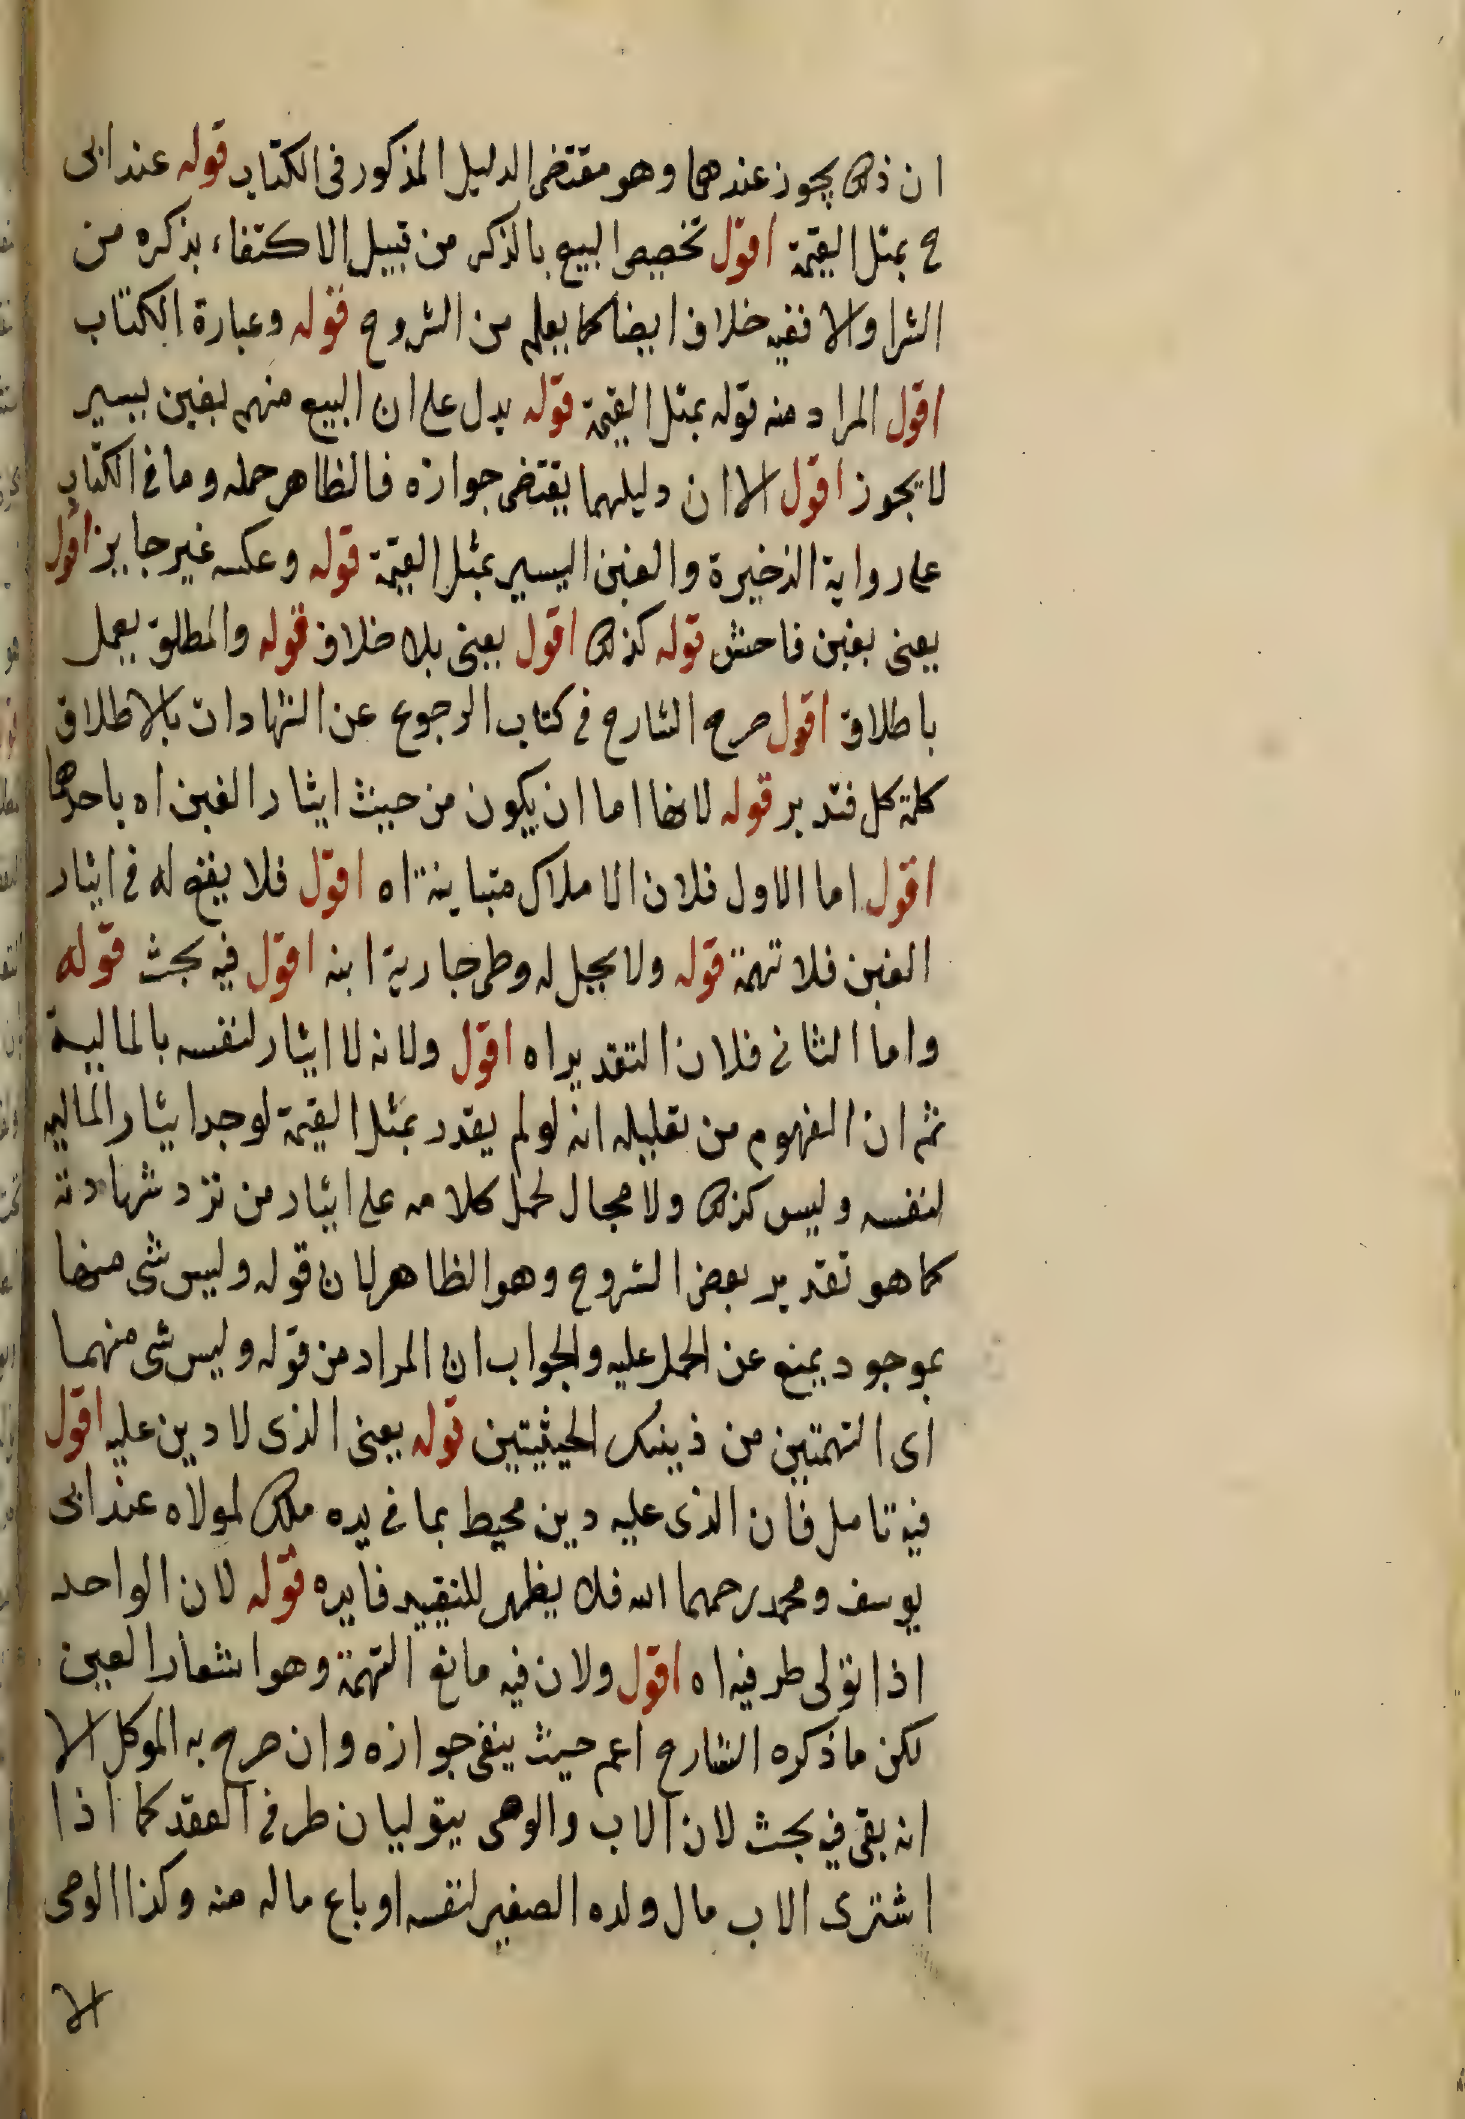 ان ذلك يجوز عندهما وهو مقتضى الدليل المذكور فى الكتاب قوله عند ابى
ح بمثل القيمة اقول تخصيص البيع بالذكر من قبيل الاكتفاء بذكره من
الشرا والا ففيه خلاف ايضا كما يعلم من الشروح قوله وعبارة الكتاب
اقول المراد منه قوله بمثل القيمة قوله يدل على ان البيع منهم بغبن يسير
لا يجوز اقول الا ان دليلهما يقتضى جوازه فالظاهر حمله وما فى الكتاب
على رواية الذخيرة والغبن اليسير بمثل القيمة قوله وعكسه غير جايز اقول
يعنى بغبن فاحش قوله كذلك اقول يعنى بلا خلاف قوله والمطلق يعمل
باطلاق اقول صرح الشارح فى كتاب الرجوع عن الشهادات بالاطلاق
كلمة كل فتدبر قوله لانها اما ان يكون من حيث ايثار الغبن اه باحدهما
اقول اما الاول فلان الاملاك متباينة اه اقول فلا يقع له فى ايثار
الغبن فلا تهمة قوله ولا يحل له وطى جارية ابنه اقول فيه بحث قوله
واما الثانى فلان التقدير اه اقول ولانه لا ايثار لنفسه بالمالية
ثم ان المفهوم من تعليله انه لو لم يقدر بمثل القيمة لوجد ايثار الماليه
لنفسه وليس كذلك ولا مجال لحمل كلامه على ايثار من تزد شهادته
كما هو تقدير بعض الشروح وهو الظاهر لان قوله وليس شى منها
بموجود يمنع عن الحمل عليه والجواب ان المراد من قوله وليس شى منهما
اى التهمتين من ذينك الحيثيتين قوله يعنى الذى لا دين عليه اقول
فيه تامل فان الذى عليه دين محيط بما فى يده ملك لمولاه عند ابى
يوسف ومحمد رحمهما الله فلا يظهر للتقييد فايده قوله لان الواحد
اذا تولى طرفيه اه اقول ولان فيه مانع التهمة وهو اشعار الغبن
لكن ما ذكره الشارح اعم حيث ينفى جوازه وان صرح به الموكل الا
انه بقى فيه بحث لان الاب والوصى يتوليان طرفى العقد كما اذا
اشترى الاب مال ولده الصغير لنفسه او باع ماله منه وكذا الوصى
الا